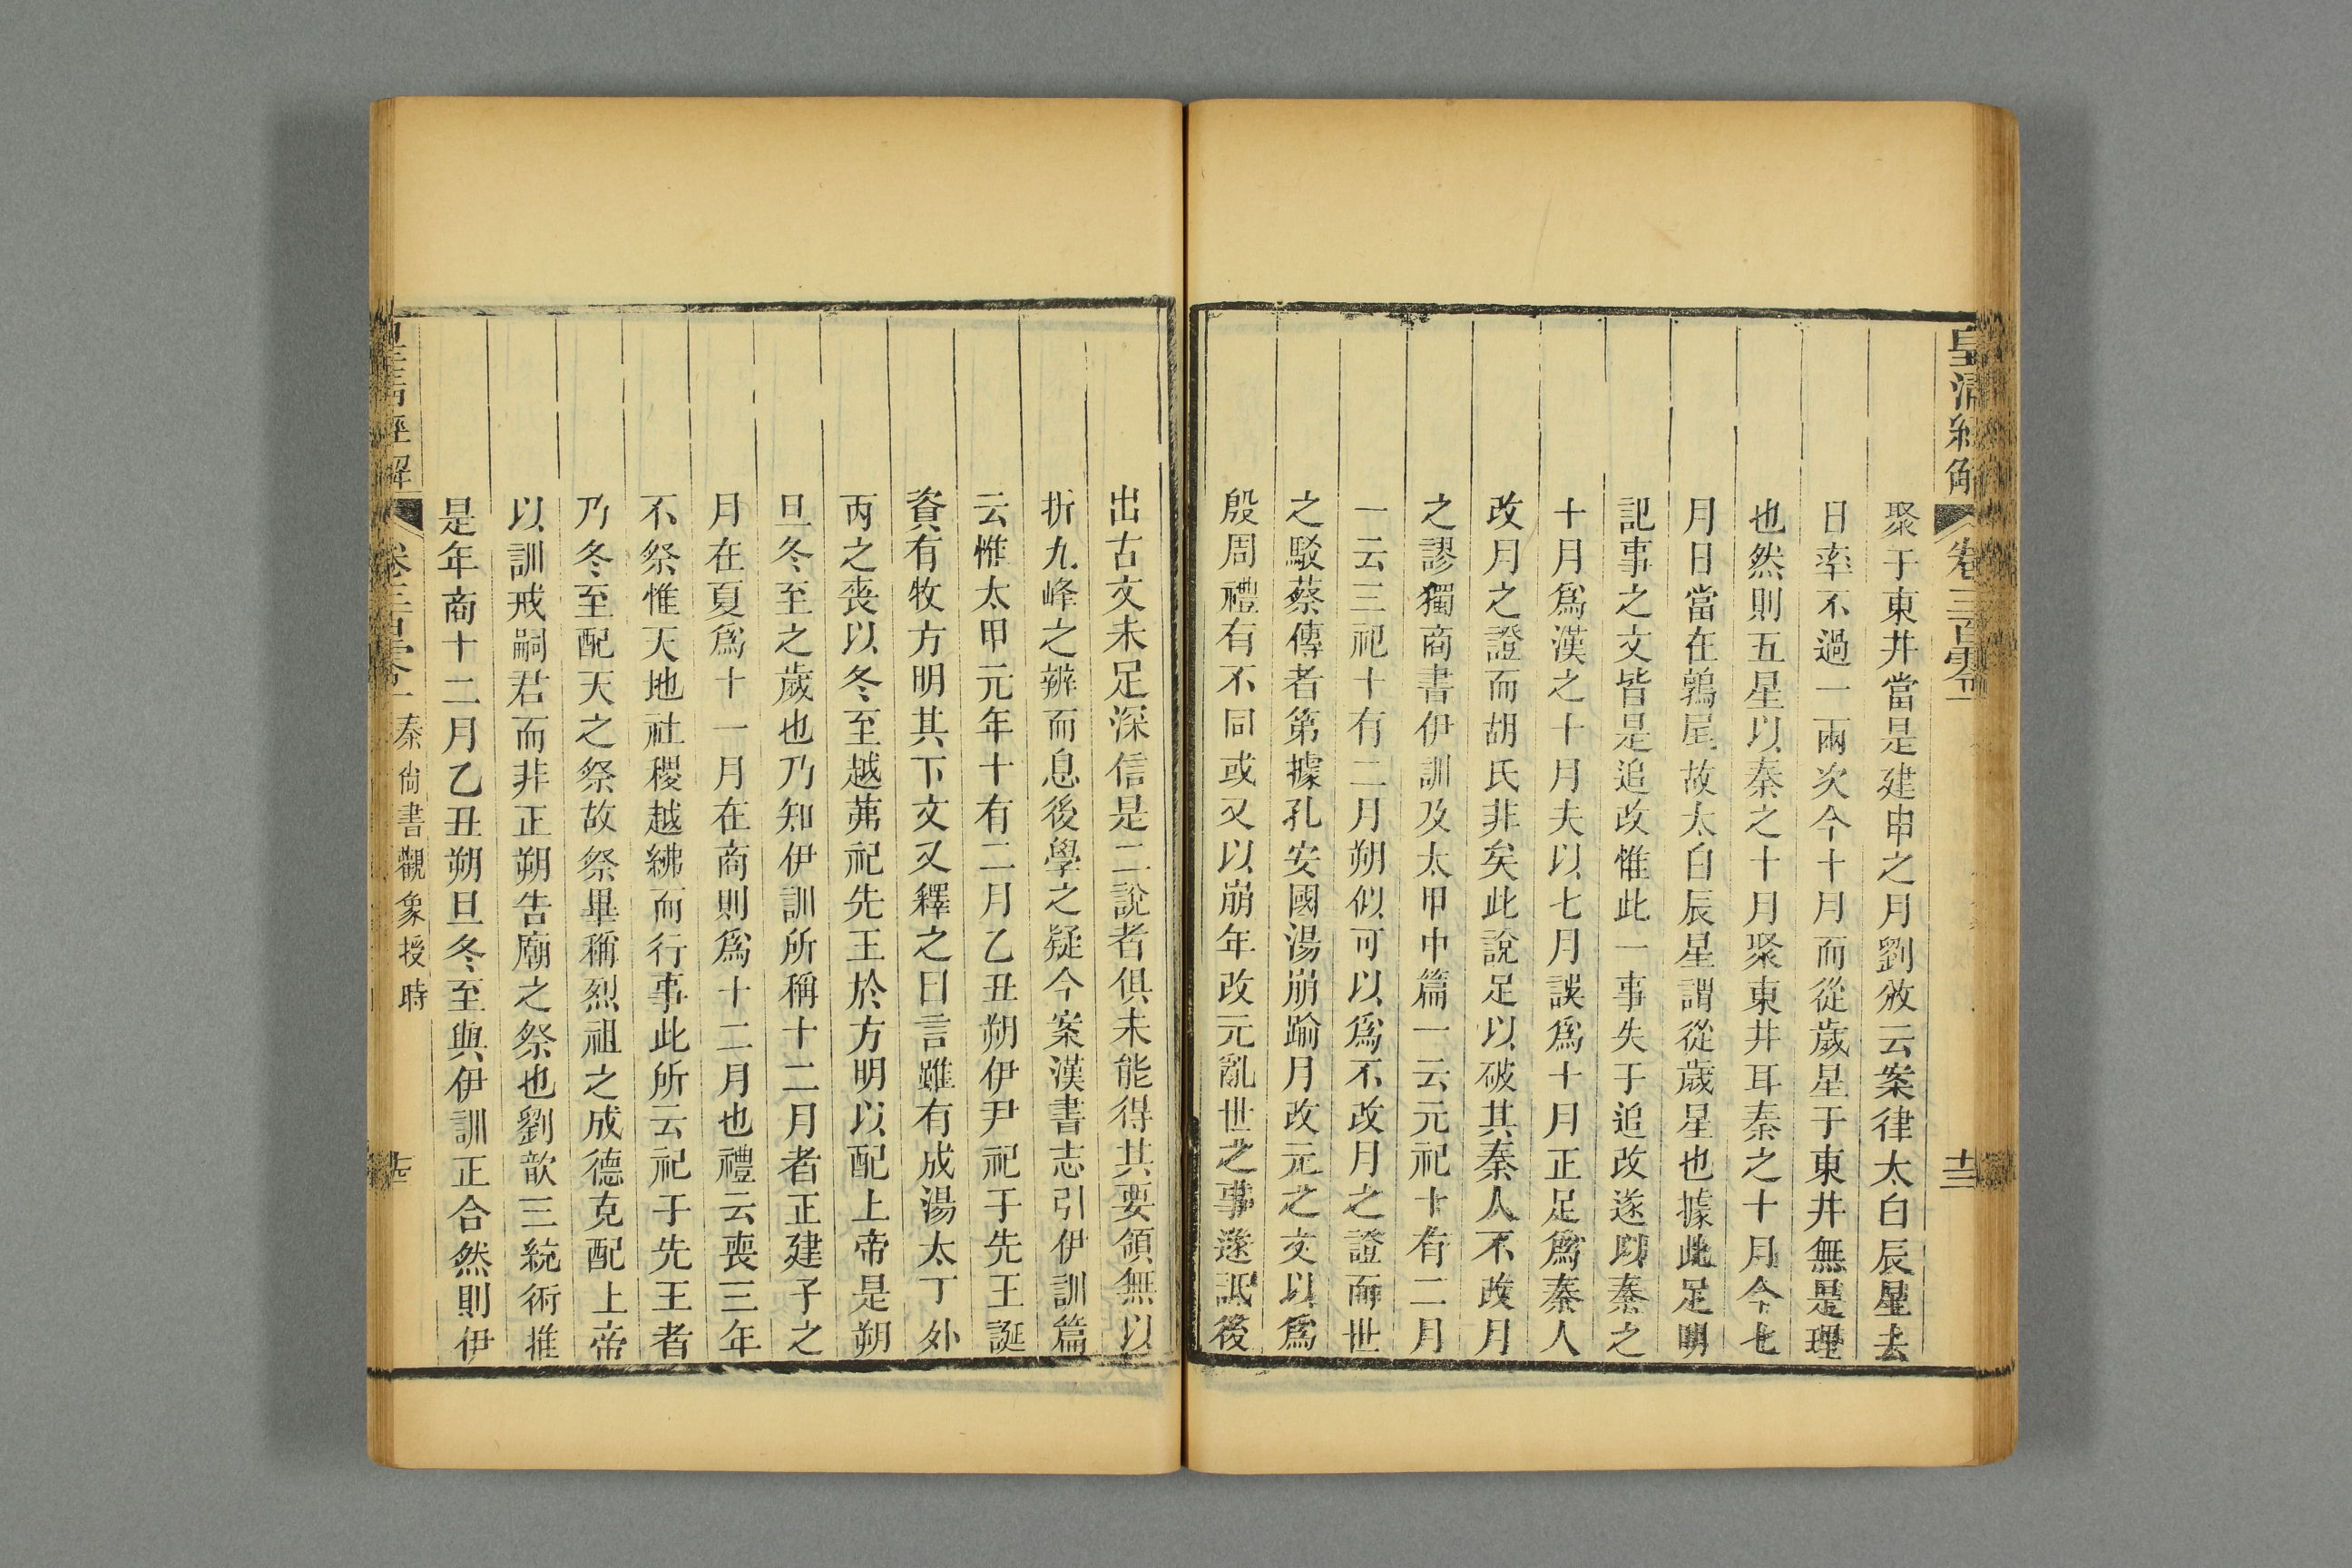 皇清經解
卷三百零一
十二
聚于東井當是建申之月劉攽云案律太白辰星去
日率不過一兩次今十月而從歲星于東井無是理
也然則五星以秦之十月聚東井耳秦之十月今七
月日當在鶉尾故太白辰星謂從歲星也據此足明
記事之文皆是追改惟此一事失于追改遂以秦之
十月爲漢之十月夫以七月誤爲十月正足爲秦人
改月之證而胡氏非矣此說足以破其秦人不改月
之謬獨商書伊訓及太甲中篇一云元祀十有二月
一云三祀十有二月朔似可以爲不改月之證而世
之駁蔡傳者第據孔安國湯崩踰月改元之文以爲
殷周禮有不同或又以崩年改元亂世之事遂詆後
出古文未足深信是二說者俱未能得其要領無以
折九峰之辨而息後學之疑今案漢書志引伊訓篇
云惟太甲元年十有二月乙丑朔伊尹祀于先王誕
資有牧方明其下文又釋之曰言雖有成湯太丁外
丙之喪以冬至越茀祀先王於方明以配上帝是朔
旦冬至之歲也乃知伊訓所稱十二月者正建子之
月在夏爲十一月在商則爲十二月也禮云喪三年
不祭惟天地社稷越紼而行事此所云祀于先王者
乃冬至配天之祭故祭畢稱烈祖之成德克配上帝
以訓戒嗣君而非正朔告廟之祭也劉歆三統術推
是年商十二月乙丑朔旦冬至與伊訓正合然則伊
皇清經解
卷三百零一
秦尚書觀象授時